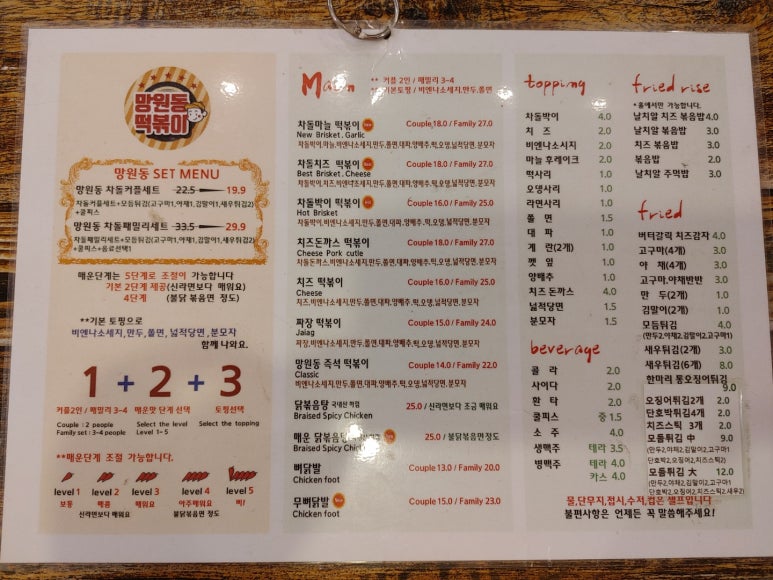 망원동
떡볶이
망원동 SET MENU
망원동 차돌커플세트 22.5 19.9
차돌커플세트+모듬튀김(고구마1,야채1,김말이2,새우튀김2)
+쿨피스
망원동 차돌패밀리세트 33.5 29.9
차돌패밀리세트+모듬튀김(고구마1,야채1,김말이1,새우튀김2)
+쿨피스+음료선택1
매운단계는 5단계로 조절이 가능합니다
기본 2단계 제공(신라면보다 매워요)
4단계 (불닭 볶음면 정도)
**기본 토핑으로
비엔나소세지,만두,쫄면,넓적당면,분모자
함께 나와요.
1 + 2 + 3
커플2인 / 패밀리 3~4 매운맛 단계 선택 토핑선택
Couple : 2 people Select the level Select the topping
Family set : 3-4 people Level 1~5
**매운단계 조절 가능합니다.
level 1 level 2 level 3 level 4 level 5
보통 매콤 매워요 아주매워요 헉!
신라면보다 매워요 불닭볶음면 정도
Main
** 커플 2인 / 패밀리 3~4
**기본토핑 / 비엔나소세지,만두,쫄면
차돌마늘 떡볶이 Couple 18.0 / Family 27.0
New Brisket. Garlic
차돌박이,마늘,비엔나소세지,만두,쫄면,대파,양배추,떡,오뎅,넓적당면,분모자
차돌치즈 떡볶이 Couple 18.0 / Family 27.0
Best Brisket. Cheese
차돌박이,치즈,비엔나소세지,만두,쫄면,대파,양배추,떡,오뎅,넓적당면,분모자
차돌박이 떡볶이 Couple 16.0 / Family 25.0
Hot Brisket
차돌박이,비엔나소세지,만두,쫄면,대파,양배추,떡,오뎅,넓적당면,분모자
치즈돈까스 떡볶이 Couple 18.0 / Family 27.0
Cheese Pork cutle
치즈돈까스,비엔나소세지,만두,쫄면,대파,양배추,떡,오뎅,넓적당면,분모자
치즈 떡볶이 Couple 16.0 / Family 25.0
Cheese
치즈,비엔나소세지,만두,쫄면,대파,양배추,떡,오뎅,넓적당면,분모자
짜장 떡볶이 Couple 15.0 / Family 24.0
Jalag
짜장,비엔나소세지,만두,쫄면,대파,양배추,떡,오뎅,넓적당면,분모자
망원동 즉석 떡볶이 Couple 14.0 / Family 22.0
Classic
비엔나소세지,만두,쫄면,대파,양배추,떡,오뎅,넓적당면,분모자
닭볶음탕 국내산 하림 25.0 / 신라면보다 조금 매워요
Braised Spicy Chicken
매운 닭볶음탕 25.0 / 불닭볶음면정도
Braised Spicy Chicken
뼈닭발 Couple 13.0 / Family 20.0
Chicken foot
무뼈닭발 Couple 15.0 / Family 23.0
Chicken foot
topping
차돌박이 4.0
치 즈 2.0
비엔나소시지 2.0
마늘 후레이크 2.0
떡사리 1.0
오뎅사리 1.0
라면사리 1.0
쫄 면 1.5
대 파 1.0
계 란(2개) 1.0
깻 잎 1.0
양배추 1.0
치즈 돈까스 4.0
넓적당면 1.5
분모자 1.5
beverage
콜 라 2.0
사이다 2.0
환 타 2.0
쿨피스 중 1.5
소 주 4.0
생맥주 테라 3.5
병맥주 테라 4.0
카스 4.0
fried rise
* 홀에서만 가능합니다.
날치알 치즈 볶음밥 4.0
날치알 볶음밥 3.0
치즈 볶음밥 3.0
볶음밥 2.0
날치알 주먹밥 3.0
fried
버터갈릭 치즈감자 4.0
고구마(4개) 3.0
야 채(4개) 3.0
고구마.야채반반 3.0
만 두(2개) 1.0
김말이(2개) 1.0
모듬튀김 4.0
(만두2,야채2,김말이2,고구마1)
새우튀김(2개) 3.0
새우튀김(6개) 8.0
한마리 통오징어튀김 9.0
오징어튀김2개 2.0
단호박튀김4개 2.0
치즈스틱 3개 2.0
모듬튀김 中 9.0
(만두2,야채2,김말이2,고구마1
단호박2,오징어2,치즈스틱2)
모듬튀김 大 12.0
(만두2,야채2,김말이2,고구마1
단호박2,오징어2,치즈스틱2,새우2)
물,단무지,접시,수저,컵은 셀프입니다
불편사항은 언제든 꼭 말씀해주세요!